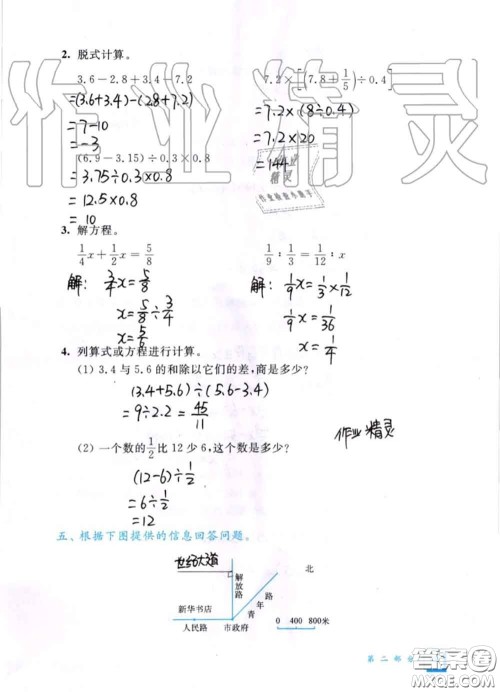 2. 脱式计算。
3.6-2.8+3.4-7.2
7.2×[(7.8+1/5)÷0.4]
=(3.6+3.4)-(2.8+7.2)
=7.2×(8÷0.4)
=7-10
=7.2×20
=-3
=144
(6.9-3.15)÷0.3×0.8
=3.75÷0.3×0.8
=12.5×0.8
=10
作业精灵
3. 解方程。
1/4x+1/2x=5/8
1/9:1/3=1/12:x
解: 3/4x=5/8
解: 1/9x=1/3×1/12
x=5/8÷3/4
1/9x=1/36
x=5/6
x=1/4
4. 列算式或方程进行计算。
(1) 3.4与5.6的和除以它们的差,商是多少?
(3.4+5.6)÷(5.6-3.4)
=9÷2.2=45/11
作业精灵
(2) 一个数的1/2比12少6,这个数是多少?
(12-6)÷1/2
=6÷1/2
=12
五、根据下图提供的信息回答问题。
世纪大道
解放路
北
青年路
新华书店
人民路
市政府
0 400 800米
第二部分